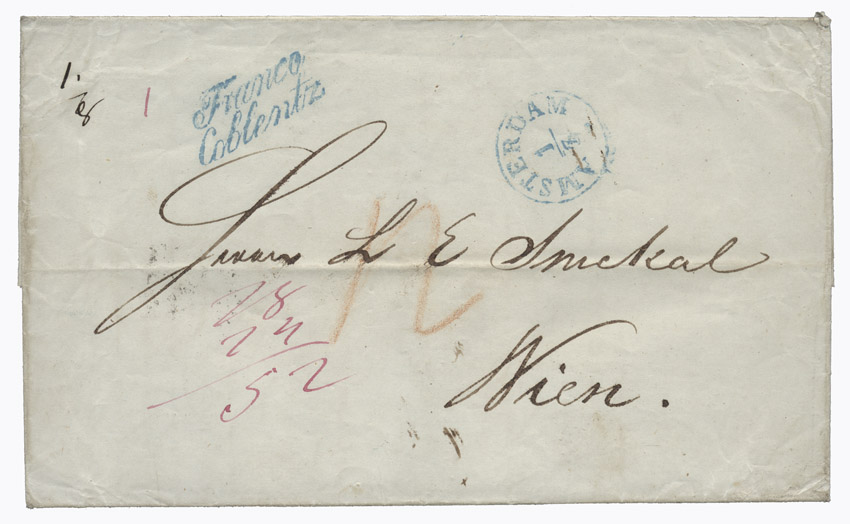 1.
1
Franco
Coblentz
AMSTERDAM
1/4
Herrn L E Smekal
Wien.